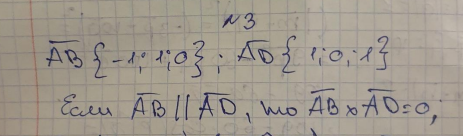 №3
A͞B͞ {-1; 1; 0}; A͞D͞ { 1; 0; 1}
Если A͞B͞ || A͞D͞, то A͞B͞ × A͞D͞=0;